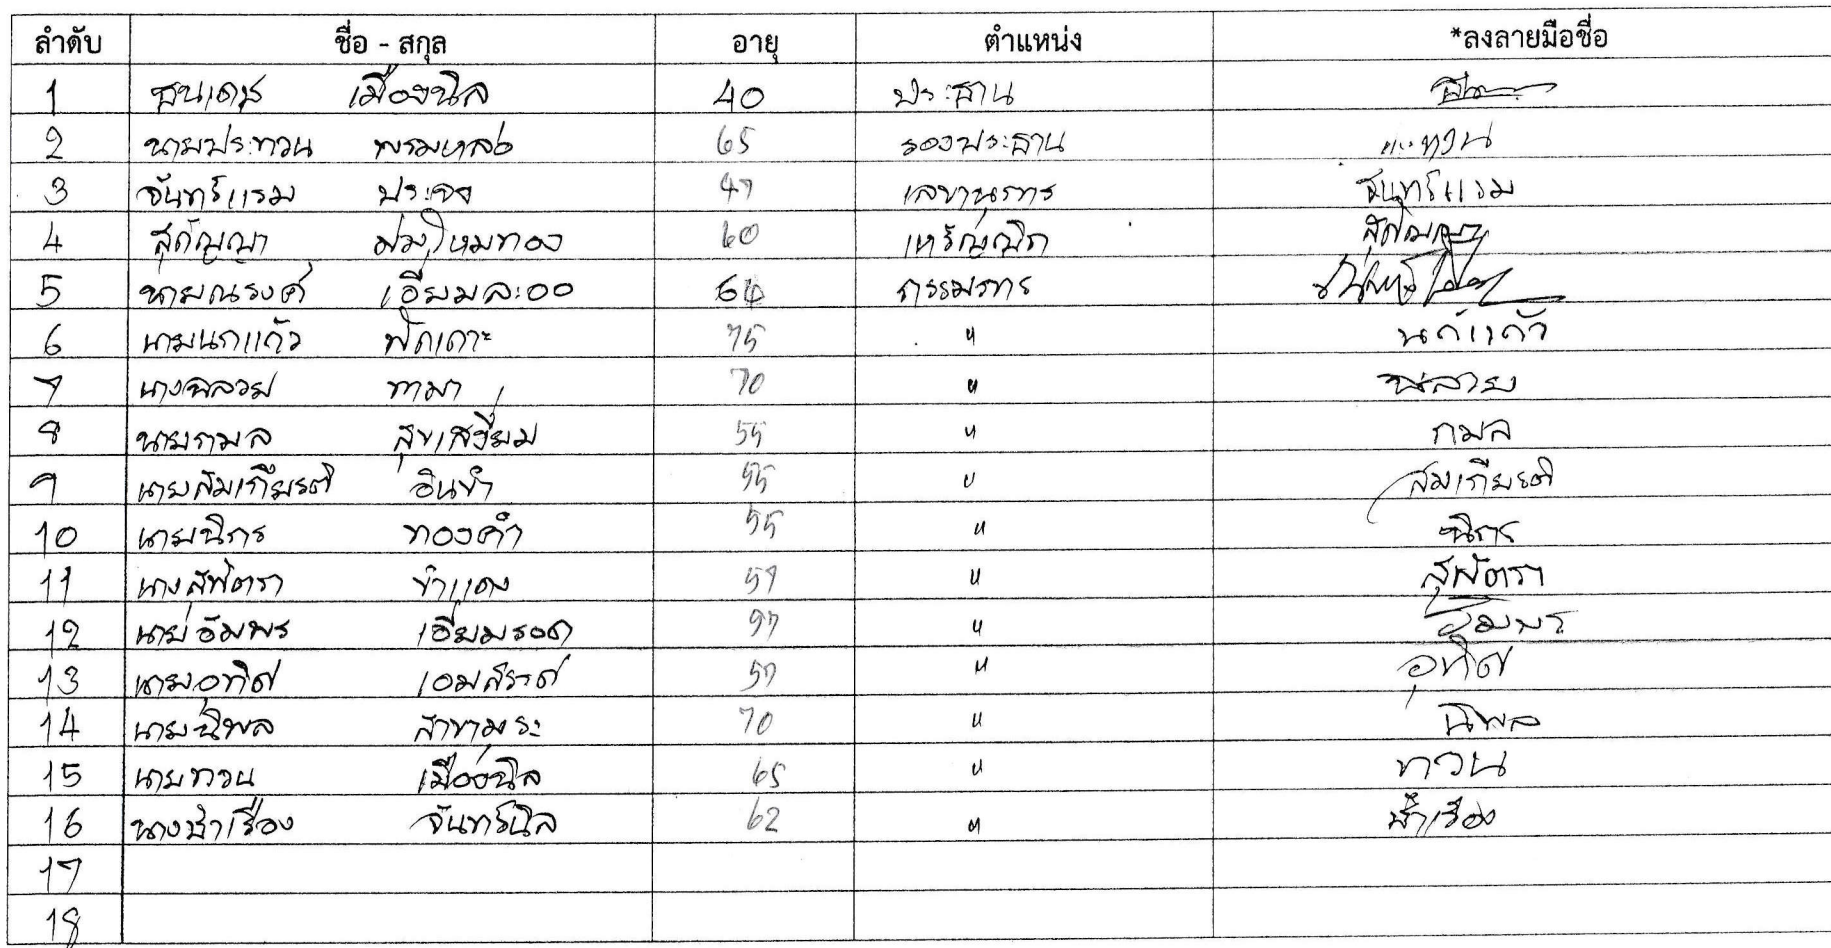 ลำดับ ชื่อ - สกุล อายุ ตำแหน่ง *ลงลายมือชื่อ
1 ธนเดช เมืองนิล 40 ประธาน
2 นายประทวน พรมหล่อ 65 รองประธาน ประทวน
3 จันทร์แรม ประจง 47 เลขานุการ จันทร์แรม
4 สุกัญญา 60 เหรัญญิก สุกัญญา
5 นายณรงค์ เอี่ยมละออ 64 กรรมการ
6 นายนกแก้ว ฟักเถาะ 75 " นกแก้ว
7 นางฉลวย ทามา 70 " ฉลวย
8 นายกมล สุขเสงี่ยม 55 " กมล
9 นายสมเกียรติ อินขำ 55 " สมเกียรติ
10 นายนิกร ทองคำ 55 " นิกร
11 นางสุพัตรา ขำแดง 57 " สุพัตรา
12 นายอัมพร เอี่ยมรอด 57 " อัมพร
13 นายอุทิศ 57 " อุทิศ
14 นายนิพล 70 " นิพล
15 นายทวน เมืองนิล 65 " ทวน
16 นางสำเรือง จันทร์นิล 62 " สำเรือง
17
18